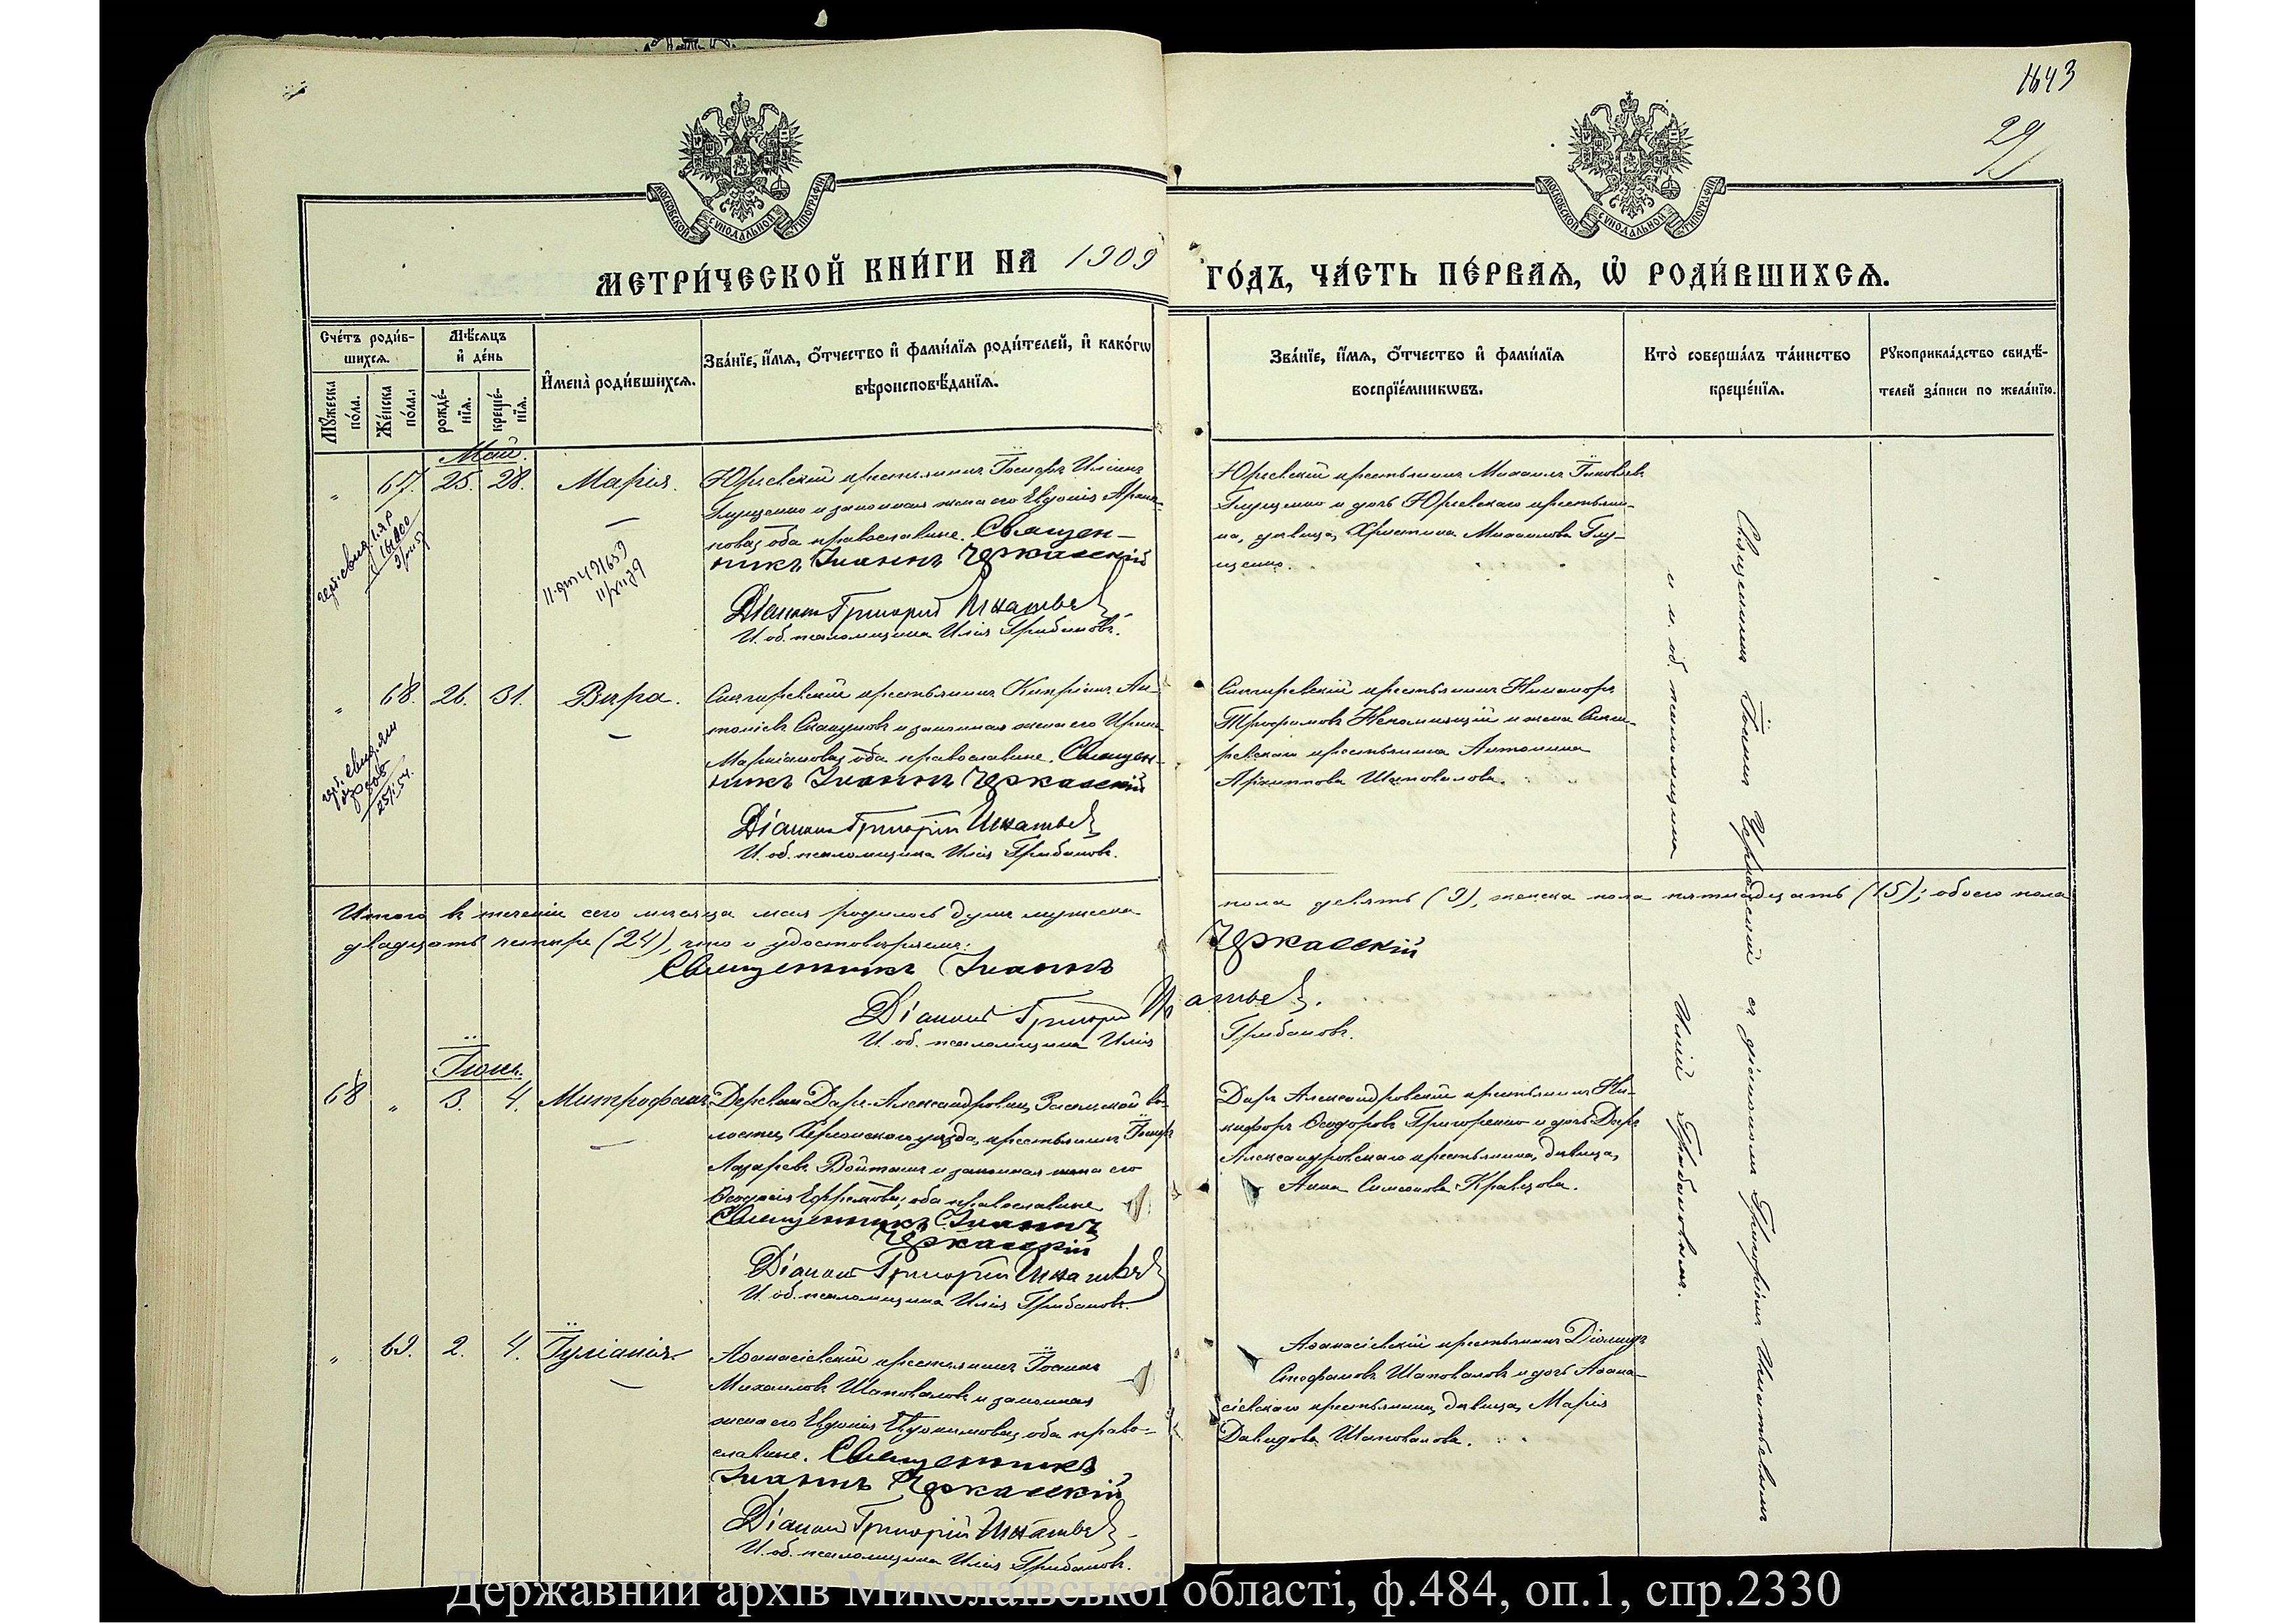 1643
29
МОСКОВСКОЙ СѴНОДАЛЬНОЙ ТИПОГРАФІИ
МОСКОВСКОЙ СѴНОДАЛЬНОЙ ТИПОГРАФІИ
МЕТРИ́ЧЕСКОЙ КНИ́ГИ НА 1909 ГО́ДЪ, ЧА́СТЬ ПЕ́РВАЯ, Ѡ РОДИ́ВШИХСЯ.
Сче́тъ роди́в-
шихся.
Мꙋ́жеска по́ла.
Же́нска по́ла.
Мѣ́сяцъ
и де́нь
рожде́-
нїя.
креще́-
нїя.
И҆мена̀ роди́вшихся.
Зва́нїе, и҆́мя, ѻ҆́тчество и҆ фами́лїя роди́телей, и҆ како́гѡ
вѣроисповѣ́данїя.
Зва́нїе, и҆́мя, ѻ҆́тчество и҆ фами́лїя
воспрїе́мникѡвъ.
Кто̀ соверша́лъ та́инство
креще́нїя.
Рꙋкоприкла́дство свидѣ́-
телей за́писи по жела́нїю.
Май.
" 67. 25. 28. Марія.
Юрьевскій крестьянинъ Іосифъ Иліинъ
Глущенко и законная жена его Евдокія
оба православные. Священ-
никъ Іоаннъ Черкасскій
Діаконъ Григорій Игнатьев
И. об. псаломщика Илія Грибановъ.
Юрьевскій крестьянинъ Михаилъ Іаковлевъ
Глущенко и дочь Юрьевскаго крестьяни-
на, девица, Христина Михаилова Глу-
щенко.
" 68. 26. 31. Вѣра.
Снигиревскій крестьянинъ Кипріанъ Ан-
тоніевъ и законная жена его Ирина
оба православные. Священ-
никъ Іоаннъ Черкасскій
Діаконъ Григорій Игнатьев
И. об. псаломщика Илія Грибановъ.
Снигиревскій крестьянинъ Никаноръ
Трофимовъ Непомнящій и жена Сниги-
ревскаго крестьянина Антонина
Архиппова Шаповалова.
Итого въ теченіи сего мѣсяца мая родилось душъ мужеска пола девять (9), женска пола пятнадцать (15); обоего пола
двадцать четыре (24), что и удостовѣряемъ:
Священникъ Іоаннъ Черкасскій
Діаконъ Григорій Игнатьев.
И. об. псаломщика Илія Грибановъ.
Іюнь.
68 " 3. 4. Митрофанъ
Деревни Даръ-Александровки, Засельской во-
лости, Херсонскаго уѣзда, крестьянинъ Іосифъ
Лазаревъ Войташъ и законная жена его
Ѳеодосія Ефремова; оба православные
Священникъ Іоаннъ
Черкасскій
Діаконъ Григорій Игнатьев
И. об. псаломщика Илія Грибановъ.
Даръ Александровскій крестьянинъ Ни-
кифоръ Ѳеодоровъ Григоренко и дочь Даръ
Александровскаго крестьянина, дѣвица,
Анна Симеонова Кравцова.
" 69. 2. 4. Іуліанія.
Аѳанасіевскій крестьянинъ Іоаннъ
Михаиловъ Шаповаловъ и законная
жена его Евдокія Евдокимова, оба право-
славные. Священникъ
Іоаннъ Черкасскій
Діаконъ Григорій Игнатьев
И. об. псаломщика Илія Грибановъ.
Аѳанасіевскій крестьянинъ Діомидъ
Стефановъ Шаповаловъ и дочь Аѳана-
сіевскаго крестьянина, дѣвица, Марія
Давидова Шаповалова.
Священникъ Іоаннъ Черкасскій съ діакономъ Григоріемъ Игнатьевымъ
и и. об. псаломщика Иліей Грибановымъ.
Державний архів Миколаївської області, ф.484, оп.1, спр.2330